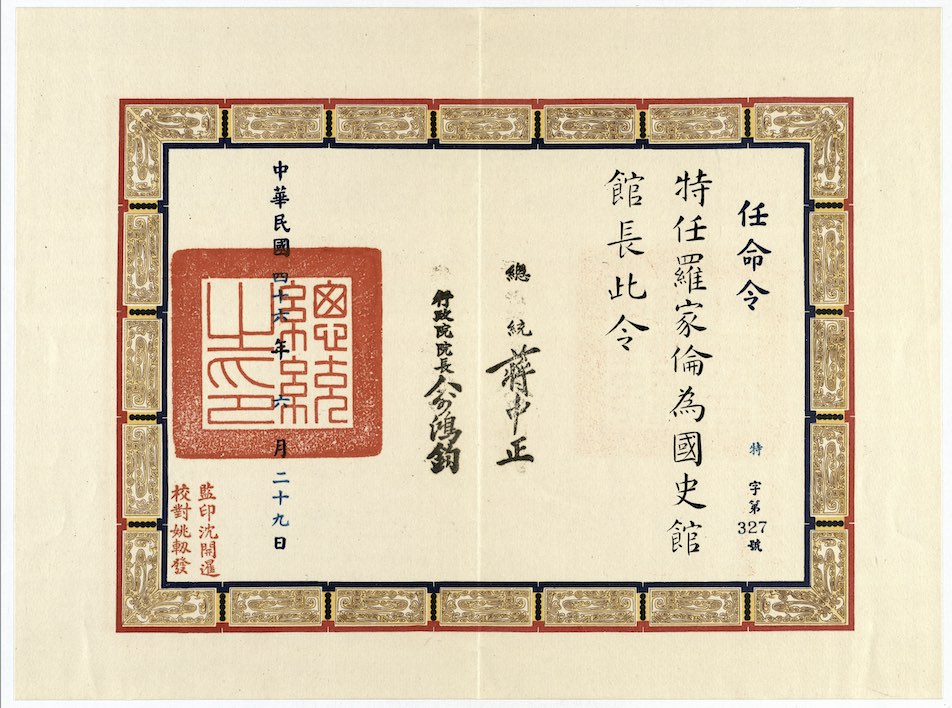 任命令
特字第327號
特任羅家倫為國史館
館長此令
總統 蔣中正
行政院院長 俞鴻鈞
中華民國四十六年六月二十九日
總統之印
監印沈開運
校對姚軔發